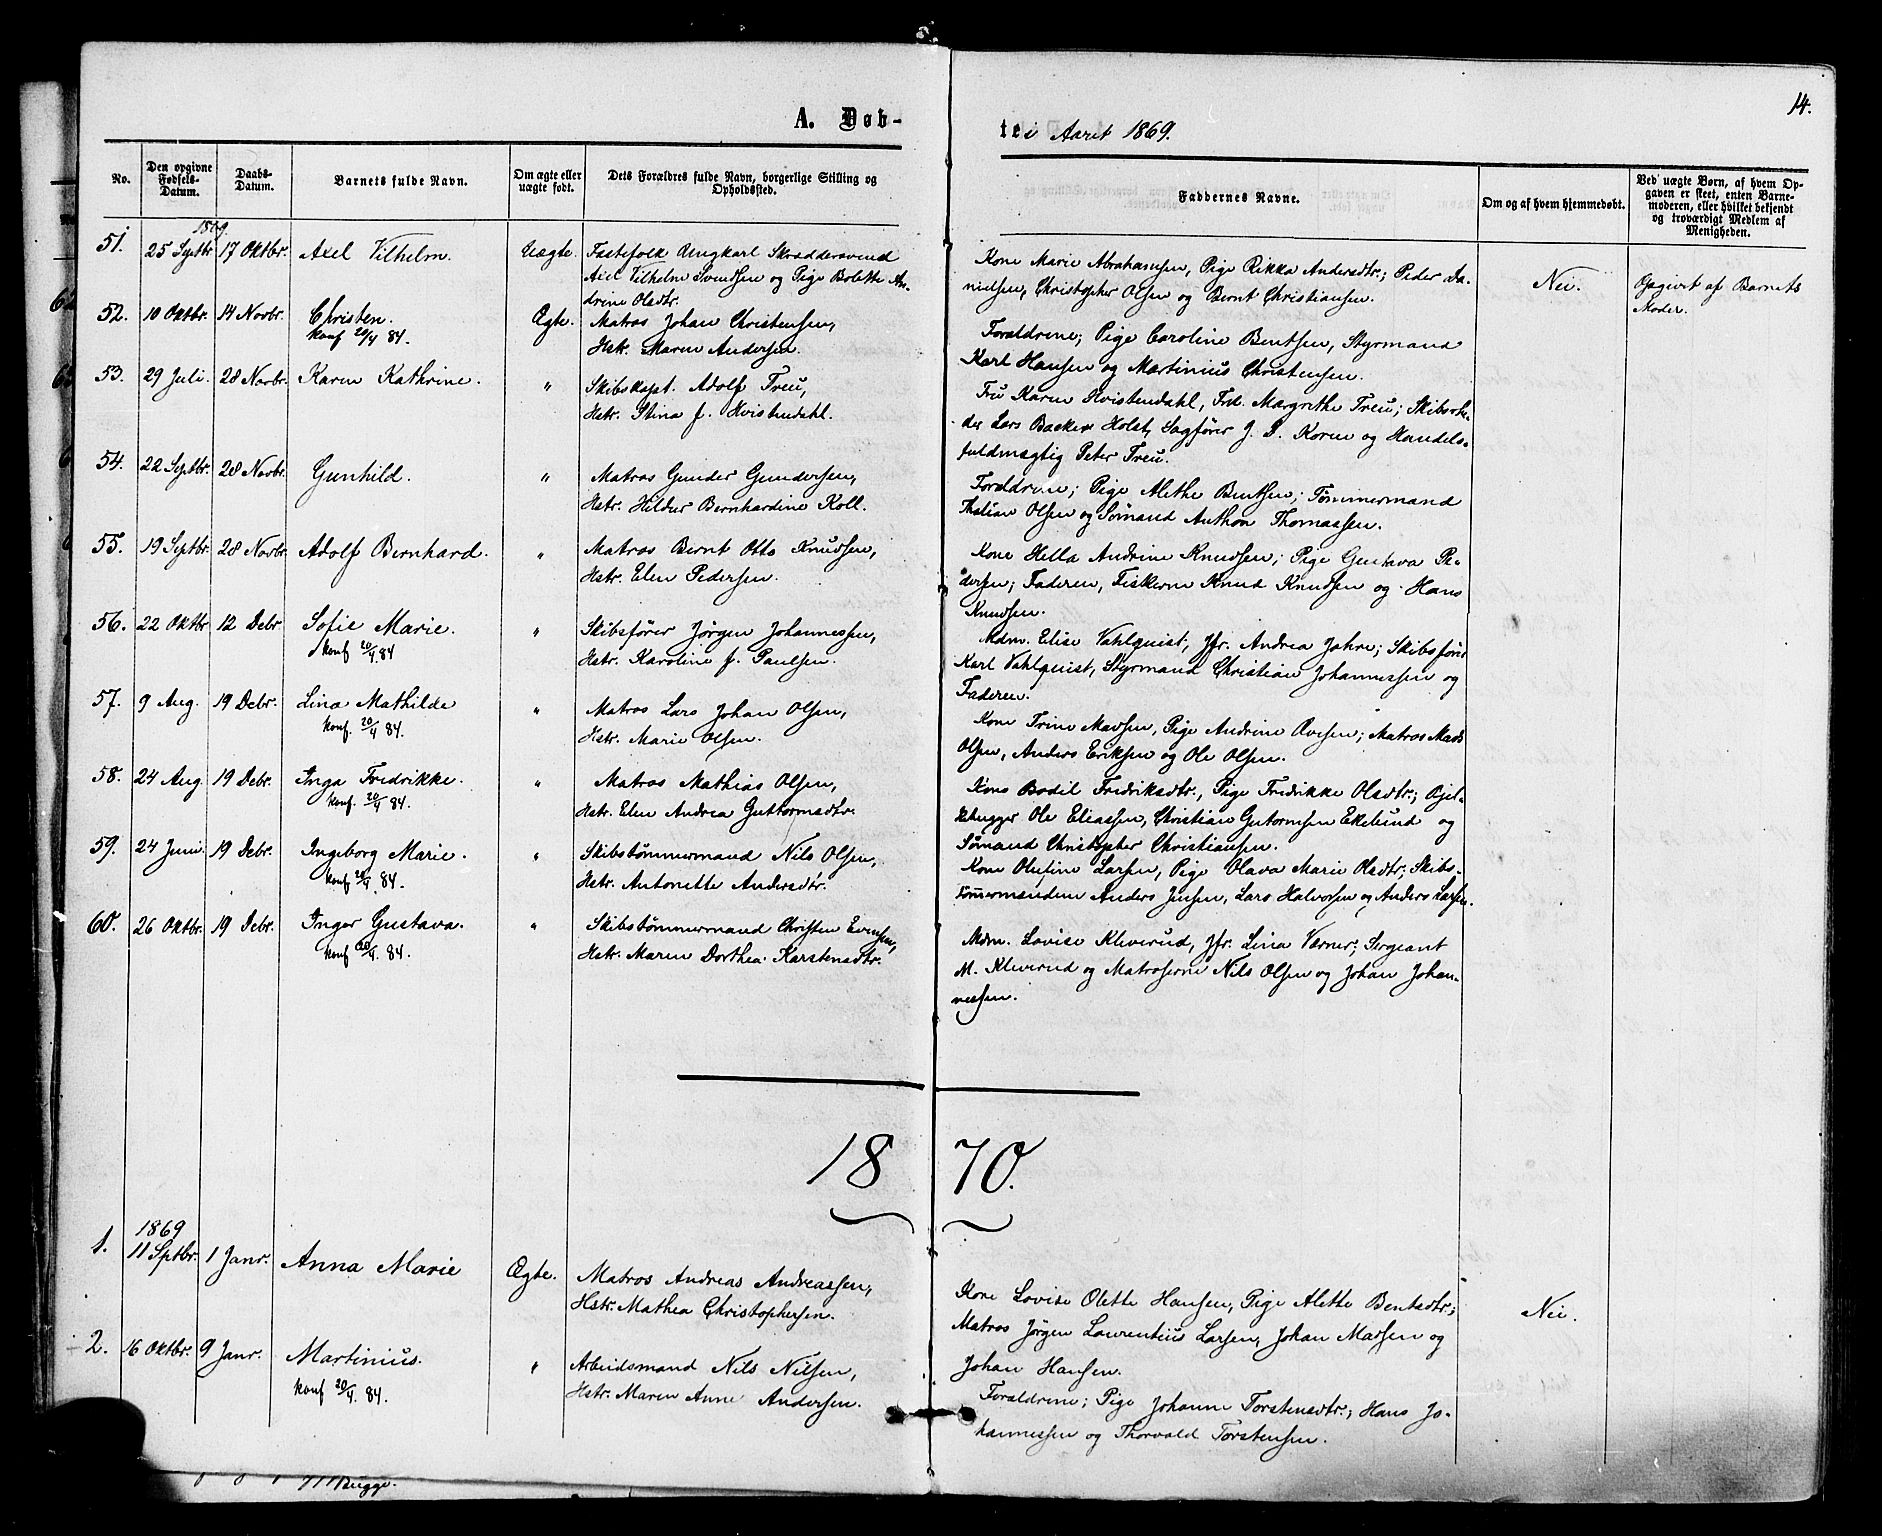 14.
A. Døb-
te i Aaret 1869.
No.
Den opgivne Fødsels-Datum.
Daabs-Datum.
Barnets fulde Navn.
Om ægte eller uægte født.
Dets Forældres fulde Navn, borgerlige Stilling og Opholdssted.
Faddernes Navne.
Om og af hvem hjemmedøbt.
Ved uægte Børn, af hvem Opgaven er skeet, enten Barnemoderen, eller hvilket bekjendt og troværdigt Medlem af Menigheden.
1869
51. 25 Septbr. 17 Oktbr. Axel Vilhelm. Uægte. Fastefolk Ungkarl Skræddersvend
Axel Vilhelm Svendsen og Pige Bolette An-
drine Olsdtr.
Kone Marie Abrahamsen, Pige Rikka Andersdtr.; Peder Da-
nielsen, Christopher Olsen og Bernt Christiansen.
Nei.
Opgivet af Barnets
Moder.
52. 10 Oktbr. 14 Novbr. Christen. Ægte. Matros Johan Christensen,
konf 20/4 84. Hstr. Maren Andersen.
Forældrene; Pige Caroline Bentsen, Styrmand
Karl Hansen og Martinius Christensen.
53. 29 Juli. 28 Novbr. Karen Kathrine. " Skibskapt. Adolf Treu,
Hstr. Stina f. Hvistendahl.
Fru Karen Hvistendahl, Frk. Margrethe Treu; Skibsrhe-
der Lars Backer Holst, Sagfører J. P. Koren og Handels-
fuldmægtig Peter Treu.
54. 22 Septbr. 28 Novbr. Gunhild. " Matros Gunder Gundersen,
Hstr. Hildur Bernhardine Koll.
Forældrene; Pige Alethe Bentsen; Tømmermand
Thalian Olsen og Sømand Anthon Thomassen.
55. 19 Septbr. 28 Novbr. Adolf Bernhard. " Matros Bernt Otto Knudsen,
Hstr. Elen Pedersen.
Kone Hella Andrine Knudsen; Pige Gustava Pe-
dersen; Faderen, Fiskerne Knud Knudsen og Hans
Knudsen.
56. 22 Oktbr 12 Debr Sofie Marie. " Skibsfører Jørgen Johannessen,
konf 20/4 84 Hstr. Karoline f. Paulsen.
Mdm. Elise Vahlquist; Jfr. Andrea Jahre; Skibsfører
Karl Vahlquist, Styrmand Christian Johannessen og
Faderen.
57. 9 Aug. 19 Debr. Lina Mathilde " Matros Lars Johan Olsen,
konf. 20/4 84. Hstr. Marie Olsen.
Kone Trine Madsen, Pige Andrine Ovesen; Matros Mads
Olsen, Anders Eriksen og Ole Olsen.
58. 24 Aug 19 Debr. Inga Fredrikke. " Matros Mathias Olsen,
konf. 20/4 84. Hstr. Elen Andrea Guttormsdtr.
Kone Bodil Fredriksdtr., Pige Fredrikke Olsdtr.; Bjel-
kehugger Ole Eliassen, Christian Gutormsen Ekelund og
Sømand Christopher Christiansen.
59. 24 Juni. 19 Debr. Ingeborg Marie. " Skibstømmermand Nils Olsen,
konf 20/4. 84. Hstr. Antonette Andersdtr.
Kone Olufine Larsen, Pige Olava Marie Olsdtr; Skibs-
tømmermændene Anders Jensen, Lars Halvorsen og Anders Larsen.
60. 26 Oktbr. 19 Debr. Inger Gustava. " Skibstømmermand Christen Evensen,
konf 20/4. 84. Hstr. Maren Dorthea Karstensdtr.
Mdm. Lovise Kleverud, Jfr. Lina Værner; Sergeant
M. Kleverud og Matroserne Nils Olsen og Johan Johan-
nessen.
1870.
1869
1. 11 Sptbr. 1 Janr. Anna Marie Ægte. Matros Andreas Andreassen,
Hstr. Mathea Christophersen.
Kone Lovise Olette Hansen, Pige Alette Bentsdtr.;
Matros Jørgen Laurentius Larsen, Johan Madsen og
Johan Hansen.
Nei.
2. 16 Oktbr. 9 Janr. Martinius. " Arbeidsmand Nils Nilsen,
konf 20/4. 84. Hstr. Maren Anne Andersen.
Forældrene; Pige Johanne Torstensdtr.; Hans Jo-
hannessen og Thorvald Torstensen.
Bugge.